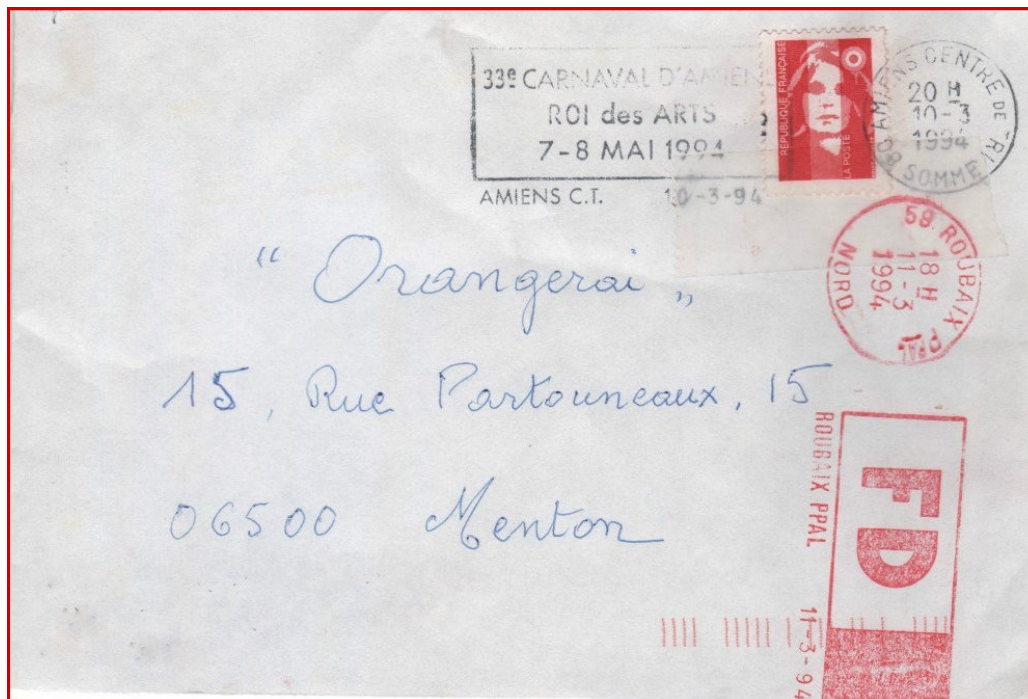 33e CARNAVAL D'AMIENS
ROI des ARTS
7-8 MAI 1994
AMIENS C.T. 10-3-94
REPUBLIQUE FRANÇAISE
LA POSTE
80 AMIENS CENTRE DE TRI
20 H
10-3
1994
SOMME
59 ROUBAIX PPAL
18 H
11-3
1994
NORD
"Orangerai"
15, Rue Partouneaux, 15
06500 Menton
ROUBAIX PPAL 11-3-94
FD